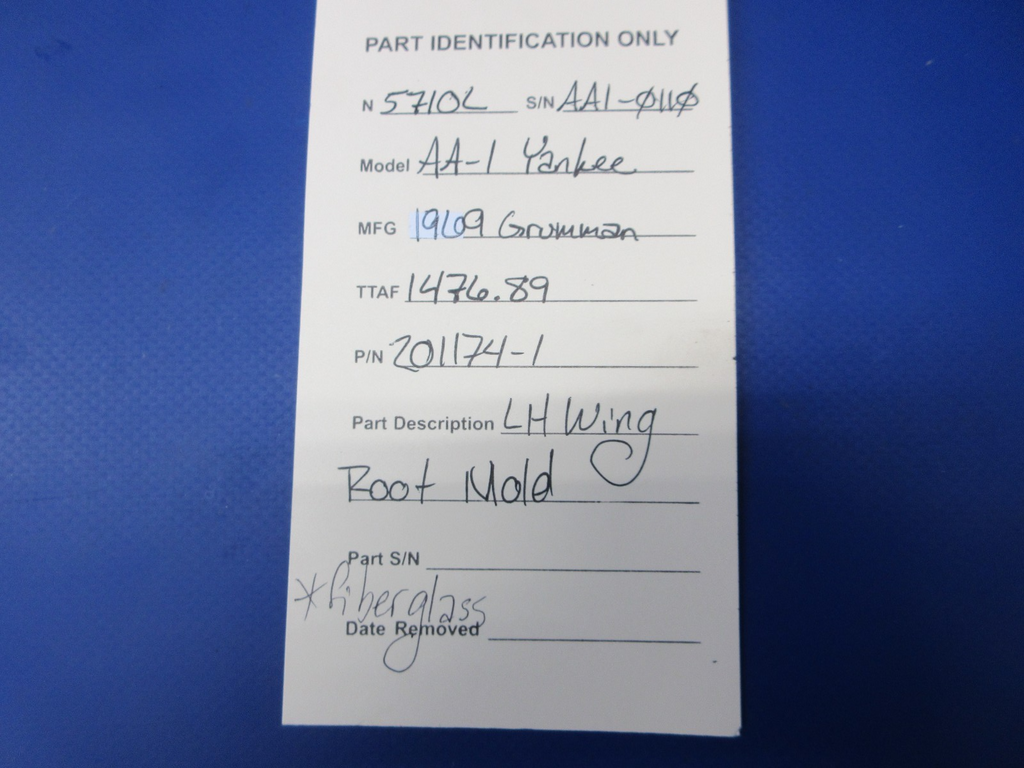 PART IDENTIFICATION ONLY
N 5710L S/N AA1-0110
Model AA-1 Yankee
MFG 1969 Grumman
TTAF 1476.89
P/N 201174-1
Part Description LH Wing
Root Mold
Part S/N
*fiberglass
Date Removed